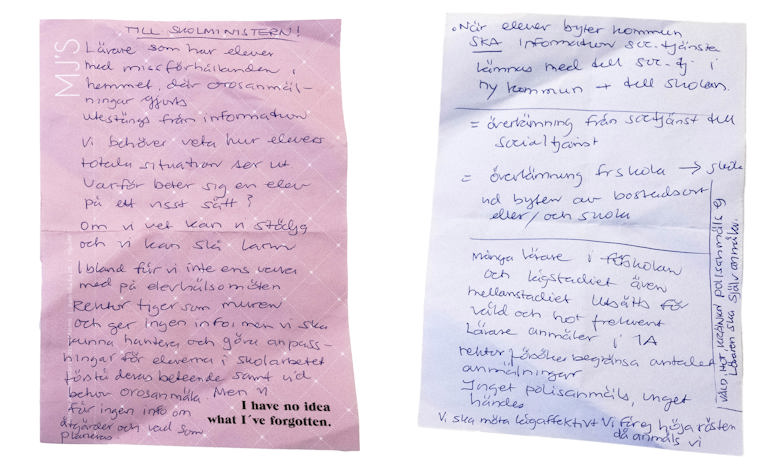 MJ'S
TILL SKOLMINISTERN!
Lärare som har elever
med missförhållanden i
hemmet, där orosanmäl-
ningar gjorts
utestängs från information
Vi behöver veta hur elevers
totala situation ser ut
Varför beter sig en elev
på ett visst sätt?
Om vi vet kan vi stödja
och vi kan slå larm
Ibland får vi inte ens vara
med på elevhälsomöten
Rektor tiger som muren
och ger ingen info, men vi ska
kunna hantera och göra anpass-
ningar för eleverna i skolarbetet
förstå deras beteende samt vid
behov orosanmäla. Men vi
får ingen info om
åtgärder och vad som
planeras.
I have no idea
what I´ve forgotten.
• När elever byter kommun
SKA information soc.tjänste
lämnas med till soc.tj. i
ny kommun + till skolan.
= överlämning från soctjänst till
socialtjänst
= överlämning frskola → skola
vid byten av bostadsort
eller/och skola
många lärare i förskolan
och lågstadiet även
mellanstadiet utsätts för
våld och hot frekvent
Lärare anmäler i IA
rektor försöker begränsa antalet
anmälningar
Inget polisanmäls, inget
händer
Vi ska möta lågaffektivt Vi får ej höja rösten
då anmäls vi
VÅLD, HOT, KRÄNKN polisanmäls ej
Läraren ska själv anmäla.